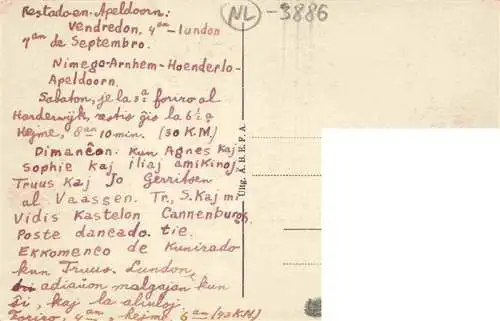 Restado en Apeldoorn:
Vendredon, 4an - lundon
7an de Septembro.
Nimego-Arnhem-Hoenderlo-
Apeldoorn.
Sabaton, je la 3a foriro al
Harderwijk, restis ĝis la 6½a
Hejme, 8an 10 min. (30 K.M.)
Dimanĉon. Kun Agnes Kaj
Sophie kaj iliaj amikinoj
Truus Kaj Jo Gerritsen
al Vaassen. Tr., S. Kaj mi
Vidis Kastelon Cannenburch.
Poste dancado tie.
Ekkomenco de Kunirado
kun Truus. Lundon,
adiaŭon malgajan kun
ŝi, kaj la aliuloj.
Foriro, 4an, hejme, 6an (43 K.M)
NL - 3886
Uitg. A.H.E.F.A.